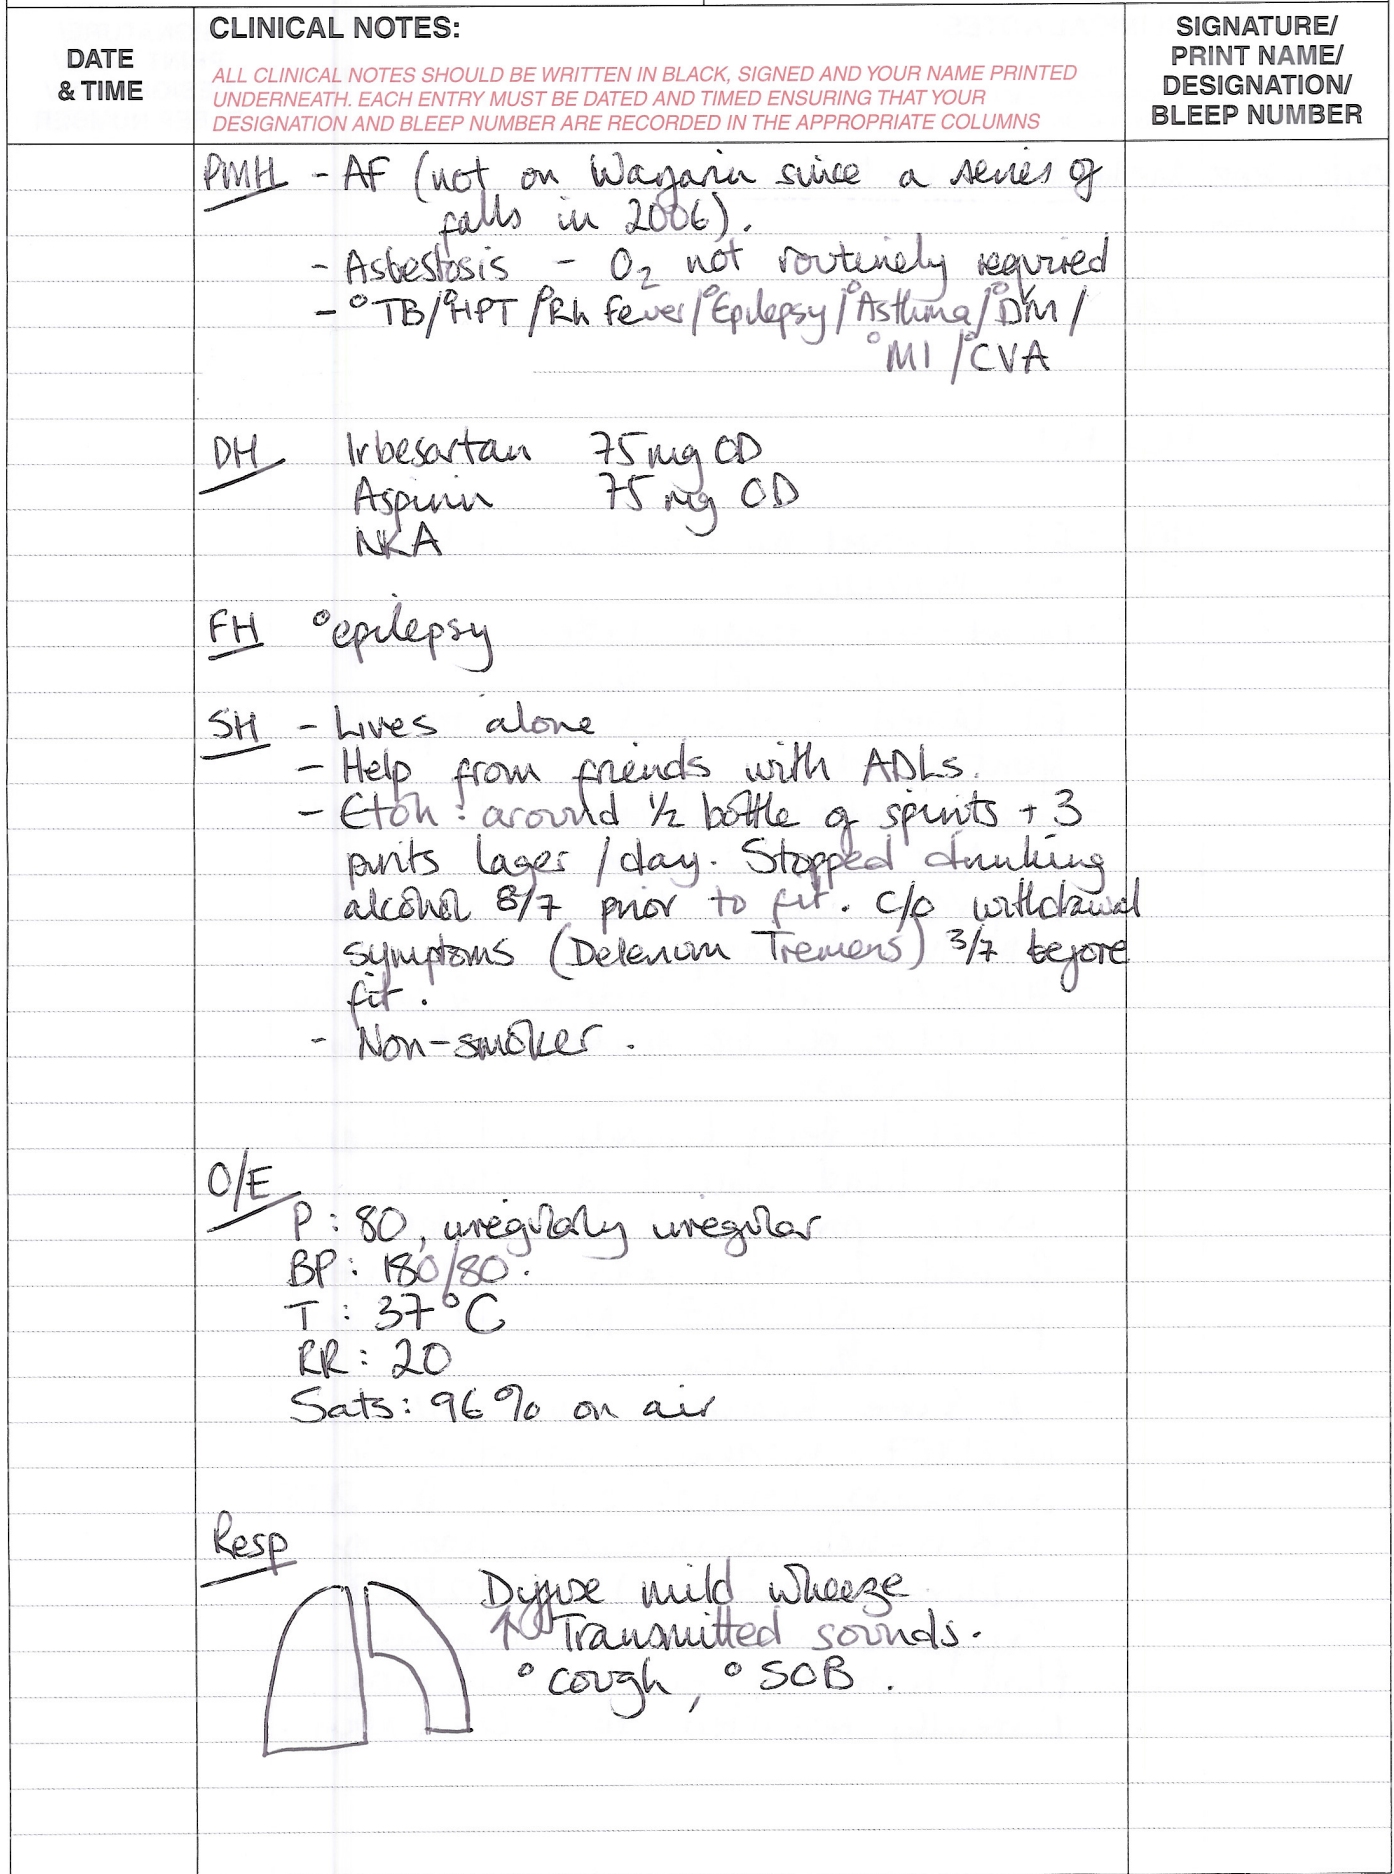 DATE
& TIME
CLINICAL NOTES:
ALL CLINICAL NOTES SHOULD BE WRITTEN IN BLACK, SIGNED AND YOUR NAME PRINTED
UNDERNEATH. EACH ENTRY MUST BE DATED AND TIMED ENSURING THAT YOUR
DESIGNATION AND BLEEP NUMBER ARE RECORDED IN THE APPROPRIATE COLUMNS
SIGNATURE/
PRINT NAME/
DESIGNATION/
BLEEP NUMBER
PMH - AF (not on Warfarin since a series of
falls in 2006).
- Asbestosis - O2 not routinely required
- °TB/°HPT/°Rh fever/°Epilepsy/°Asthma/°DM/
°MI/°CVA
DH Irbesartan 75mg OD
Aspirin 75mg OD
NKA
FH °epilepsy
SH - Lives alone
- Help from friends with ADLs.
- Etoh: around ½ bottle of spirits + 3
pints lager/day. Stopped drinking
alcohol 8/7 prior to fit. c/o withdrawal
symptoms (Delerium Tremens) 3/7 before
fit.
- Non-smoker.
O/E
P: 80, irregularly irregular
BP: 180/80.
T: 37°C
RR: 20
Sats: 96% on air
Resp
Diffuse mild wheeze
↑ Transmitted sounds.
° cough, ° SOB.